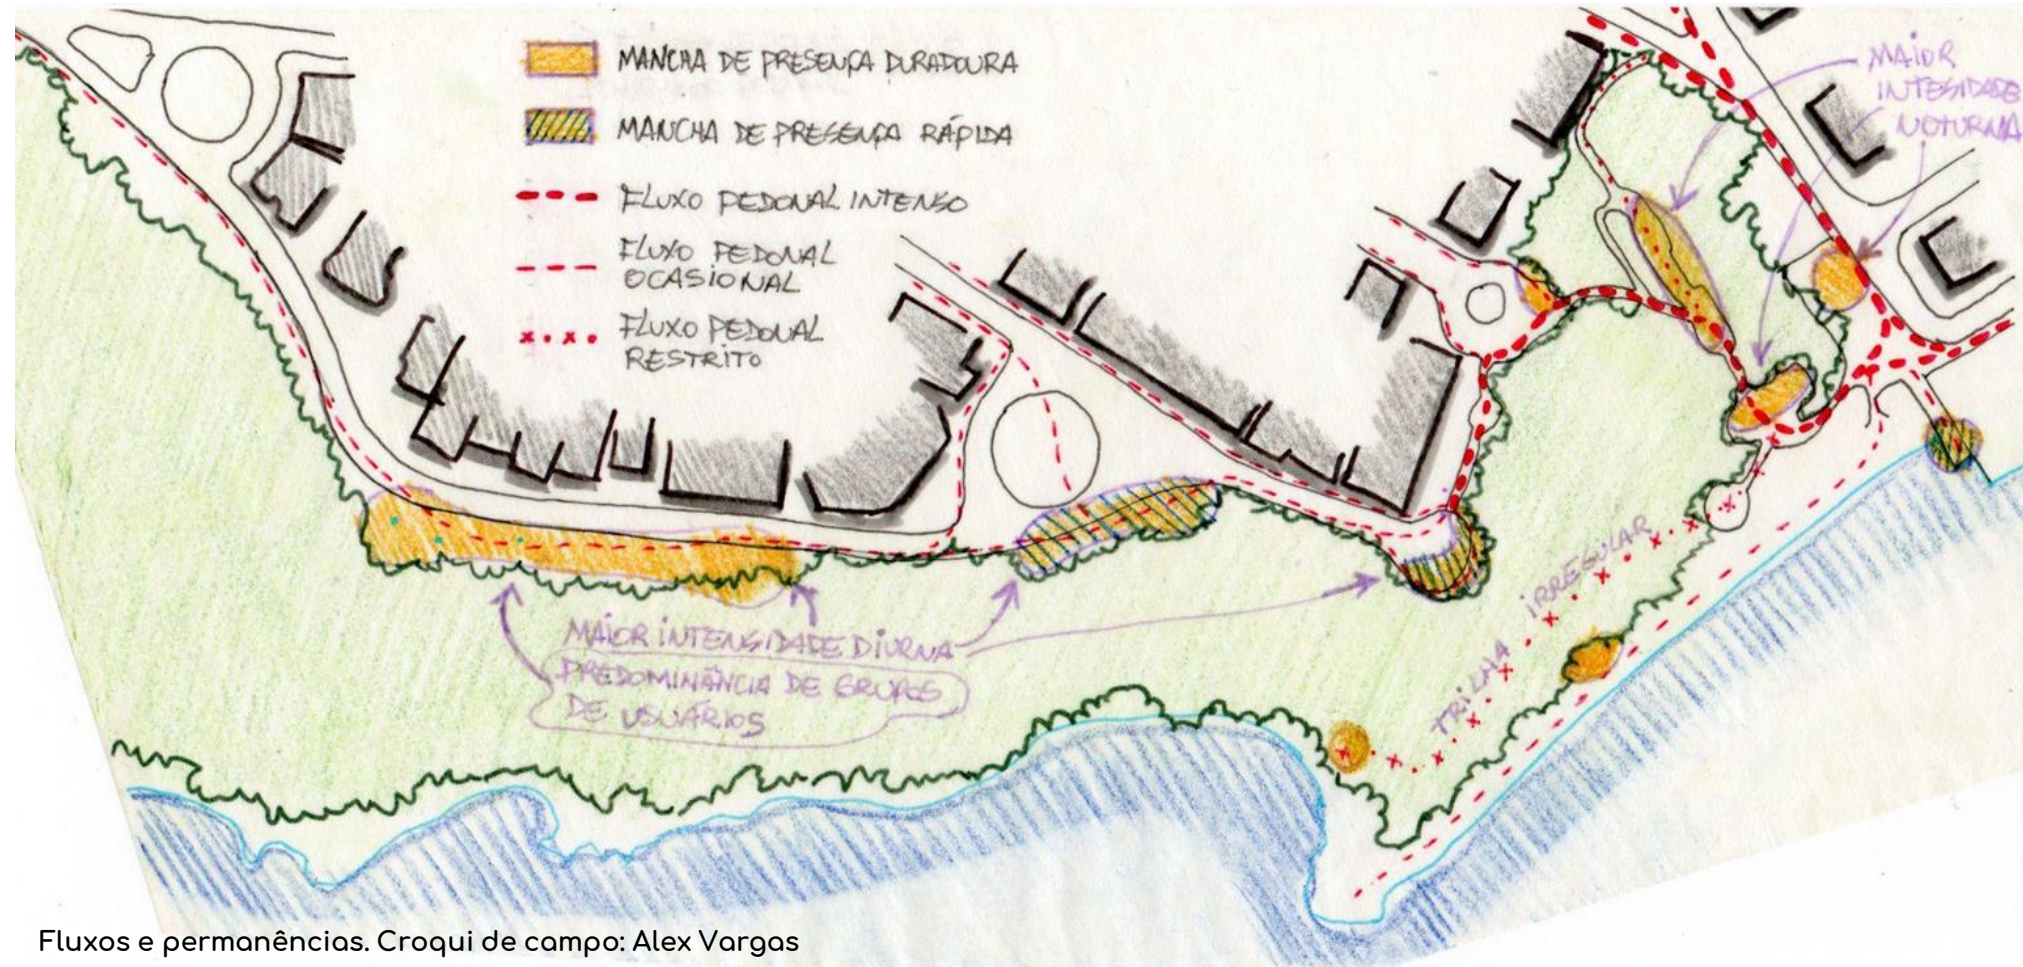 MANCHA DE PRESENÇA DURADOURA
MANCHA DE PRESENÇA RÁPIDA
FLUXO PEDONAL INTENSO
FLUXO PEDONAL
OCASIONAL
FLUXO PEDONAL
RESTRITO
MAIOR
INTESIDADE
NOTURNA
MAIOR INTENSIDADE DIURNA
PREDOMINÂNCIA DE GRUPOS
DE USUÁRIOS
TRILHA IRREGULAR
Fluxos e permanências. Croqui de campo: Alex Vargas